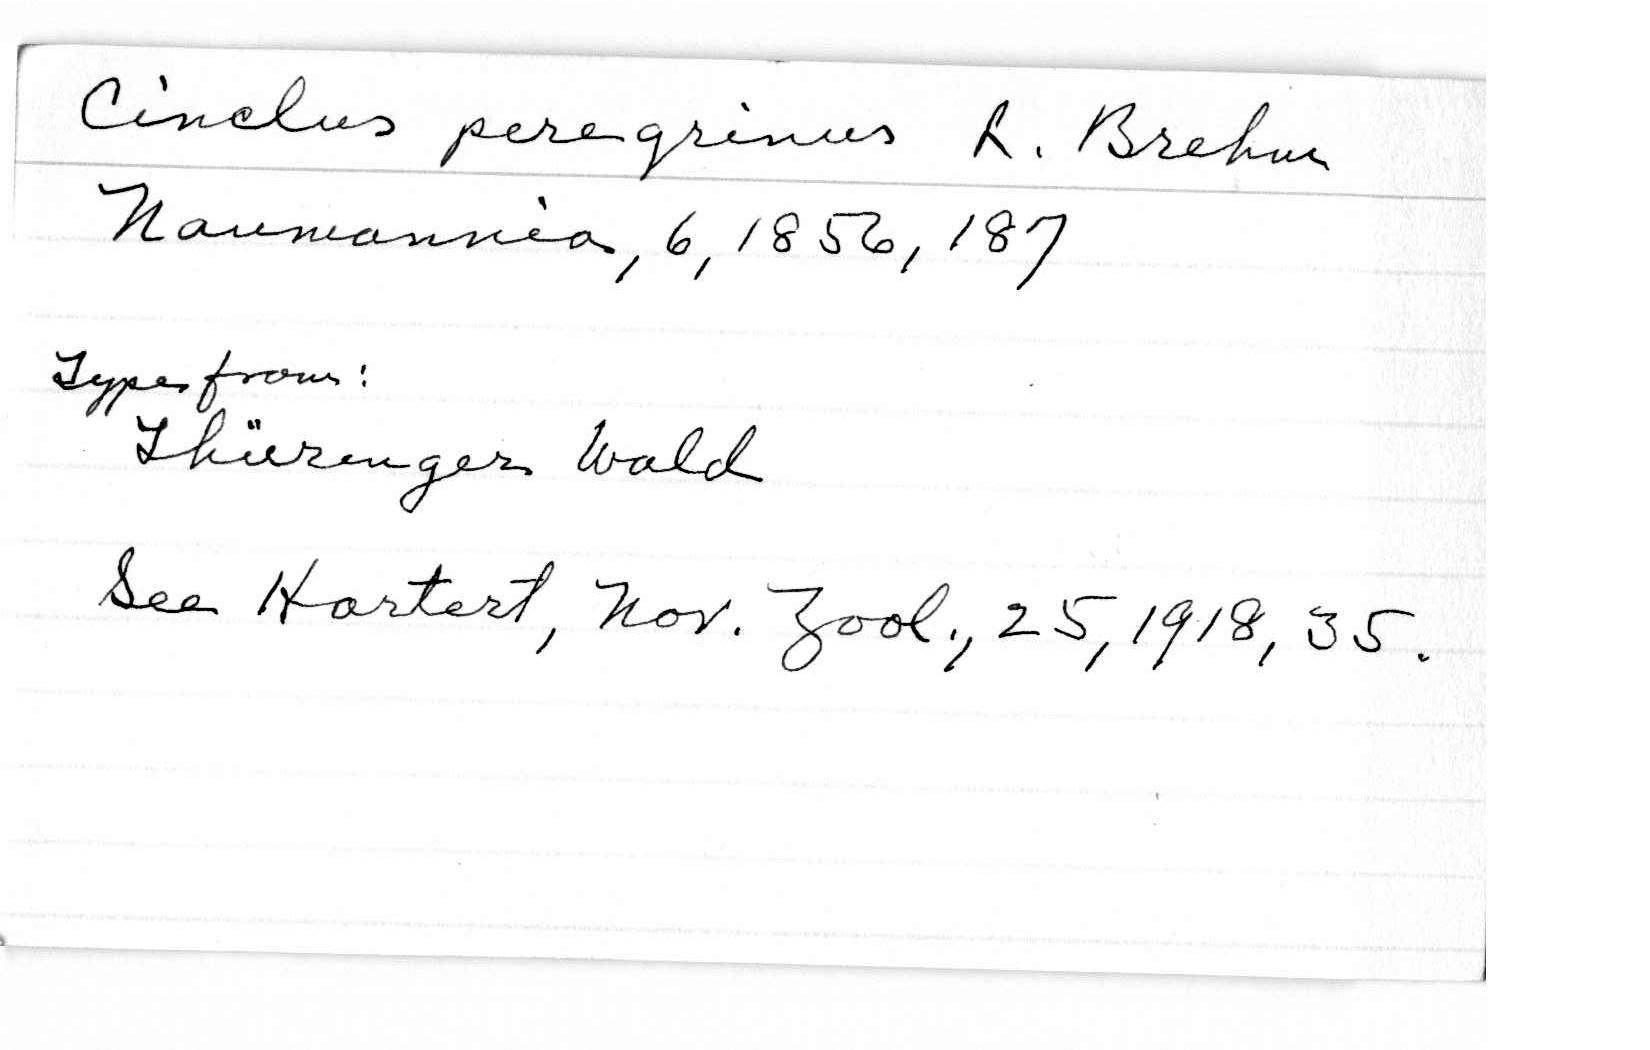 Cinclus peregrinus L. Brehm
Naumannia, 6, 1856, 187
Types from:
Thüringer Wald
See Hartert, Nov. Zool., 25, 1918, 35.